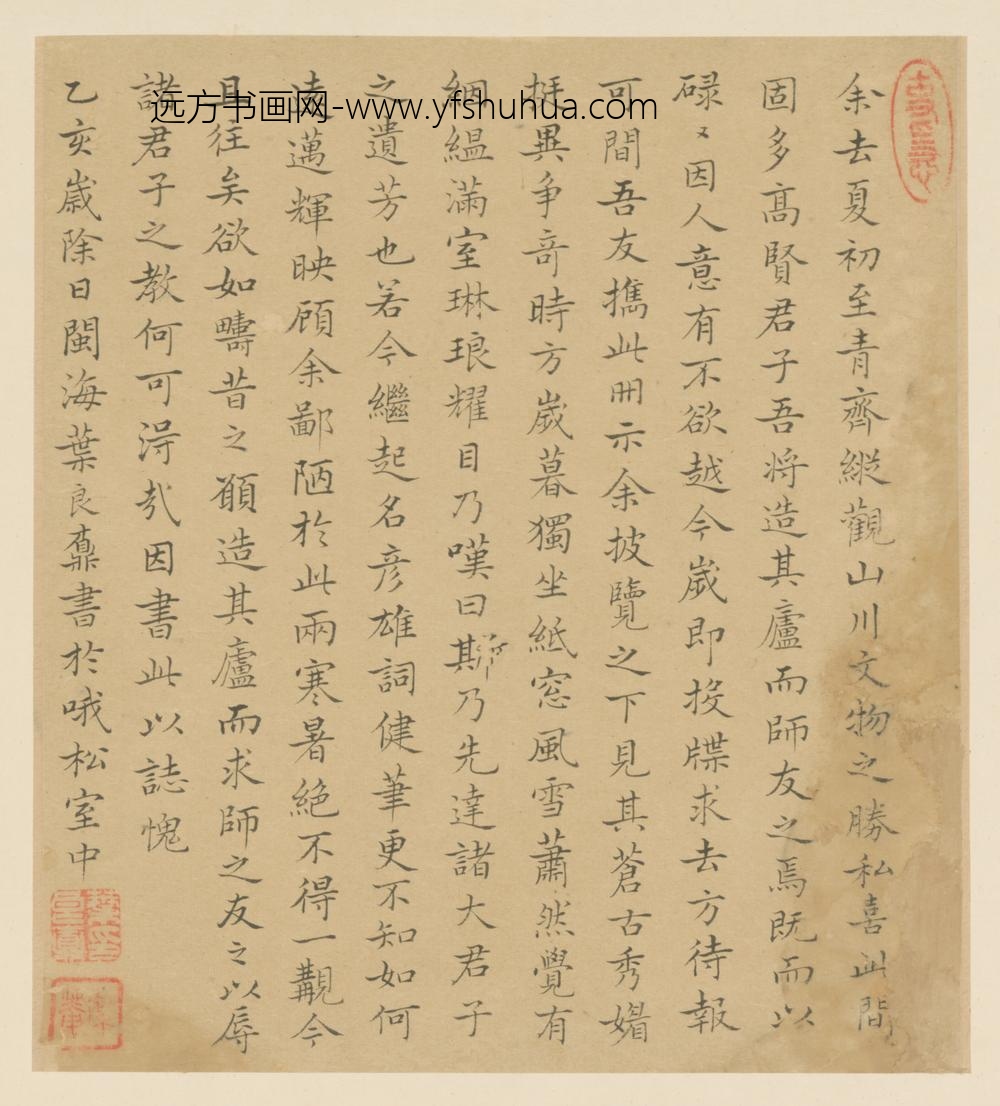 远方书画网-www.yfshuhua.com
余去夏初至青齊縱觀山川文物之勝私喜此間
固多高賢君子吾将造其廬而師友之焉既而以
碌〻因人意有不欲越今嵗即投牒求去方待報
可間吾友攜此冊示余披覽之下見其蒼古秀媚
挺異争奇時方嵗暮獨坐紙窓風雪蕭然覺有
絪緼滿室琳琅耀目乃嘆曰斯乃先達諸大君子
之遺芳也若今繼起名彦雄詞健筆更不知如何
邁輝映顧余鄙陋於此兩寒暑絶不得一覯今
且往矣欲如疇昔之願造其廬而求師之友之以辱
諸君子之教何可淂哉因書此以誌愧
乙亥嵗除日閩海葉良書於哦松室中